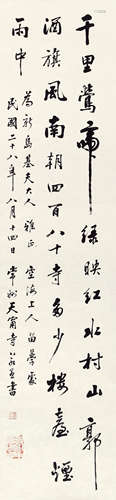 千里鶯啼緑映紅水村山郭
酒旗風南朝四百八十寺多少樓臺煙
雨中
為新烏基夫大人雅正 空海上人留學處
民國二十八年八月十四日常州天甯寺